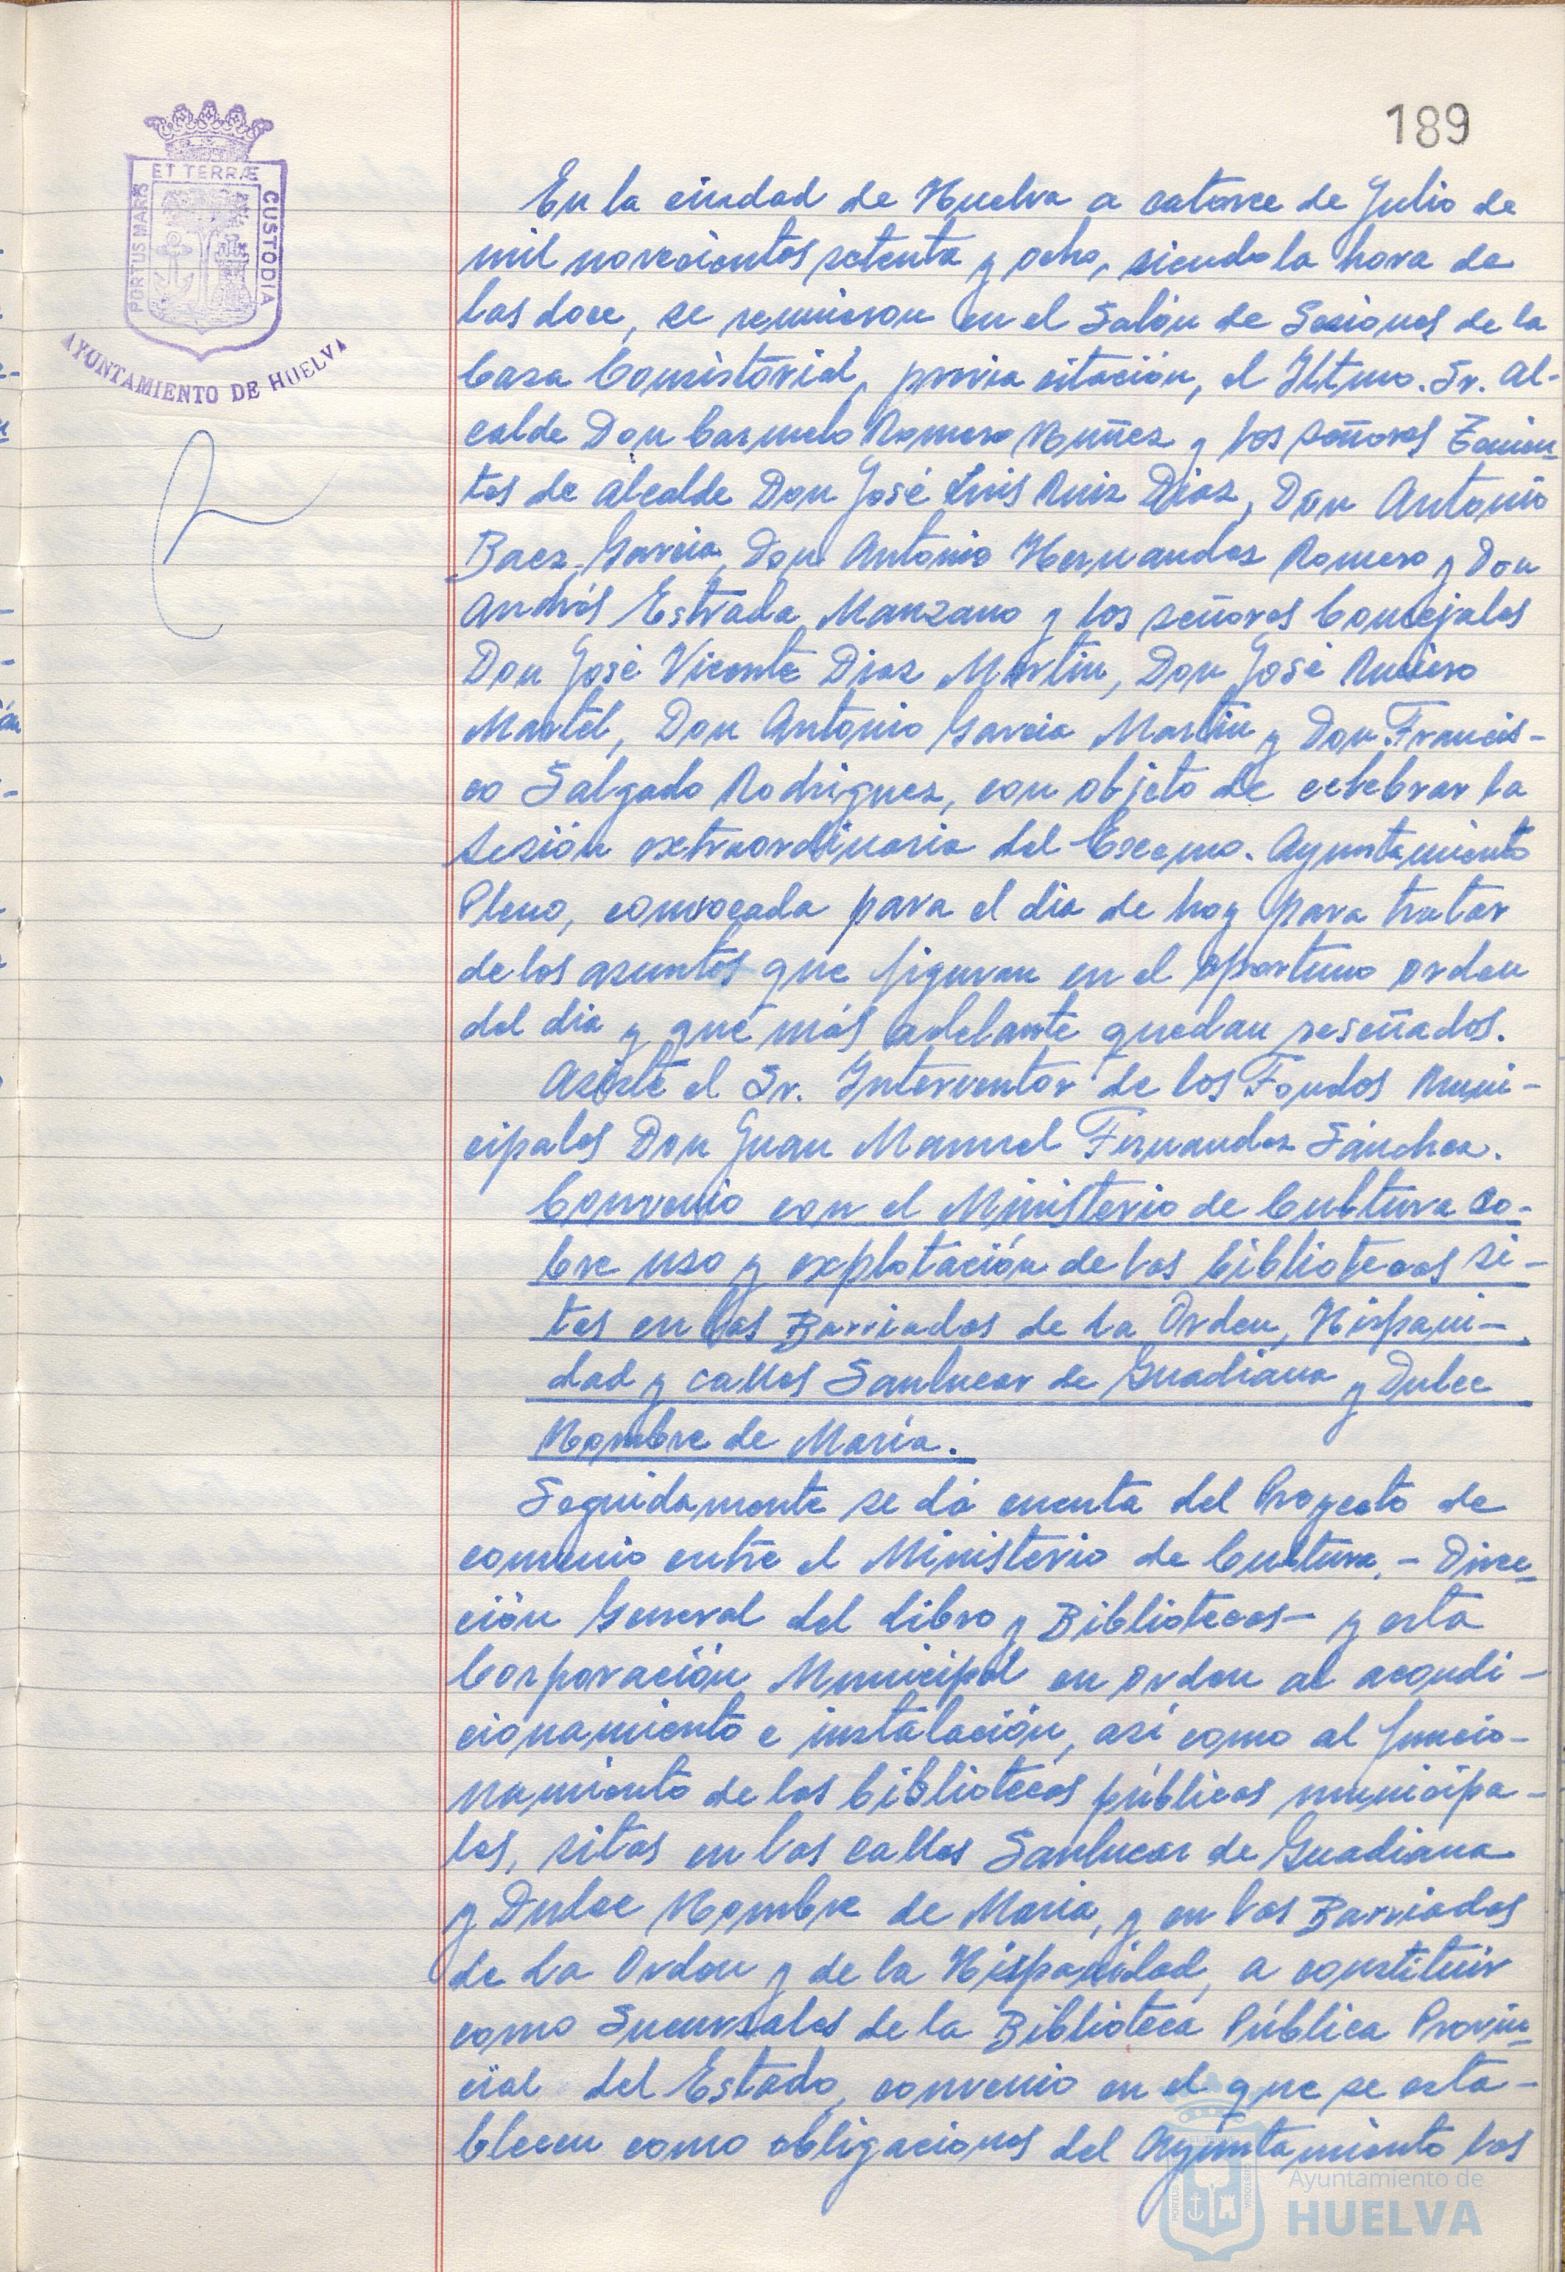 189
ET TERRÆ
PORTUS MARIS
CUSTODIA
AYUNTAMIENTO DE HUELVA
En la ciudad de Huelva a catorce de Julio de
mil novecientos setenta y ocho, siendo la hora de
las doce, se reunieron en el Salón de Sesiones de la
Casa Consistorial, previa citación, el Iltmo. Sr. Al-
calde Don Carmelo Romero Nuñez y los señores Tenien-
tes de alcalde Don José Luis Ruiz Diaz, Don Antonio
Baez Garcia, Don Antonio Hernandez Romero y Don
Andrés Estrada Manzano y los señores Concejales
Don José Vicente Diaz Martin, Don José
Martel, Don Antonio Garcia Martin y Don Francis-
co Salgado Rodriguez, con objeto de celebrar la
sesión extraordinaria del Excmo. Ayuntamiento
Pleno, convocada para el dia de hoy para tratar
de los asuntos que figuran en el oportuno orden
del dia y que más adelante quedan reseñados.
Asiste el Sr. Interventor de los Fondos Muni-
cipales Don Juan Manuel Fernandez Sánchez.
Convenio con el Ministerio de Cultura so-
bre uso y explotación de las bibliotecas si-
tas en las Barriadas de La Orden, Hispani-
dad y calles Sanlucar de Guadiana y Dulce
Nombre de María.
Seguidamente se dá cuenta del Proyecto de
convenio entre el Ministerio de Cultura, - Direc-
ción General del Libro y Bibliotecas - y esta
Corporación Municipal en orden al acondi-
cionamiento e instalación, así como al funcio-
namiento de las bibliotecas públicas municipa-
les, sitas en las calles Sanlucar de Guadiana
y Dulce Nombre de Maria, y en las Barriadas
de La Orden y de la Hispanidad, a constituir
como Sucursales de la Biblioteca Pública Provin-
cial del Estado, convenio en el que se esta-
blecen como obligaciones del Ayuntamiento las
Ayuntamiento de
HUELVA